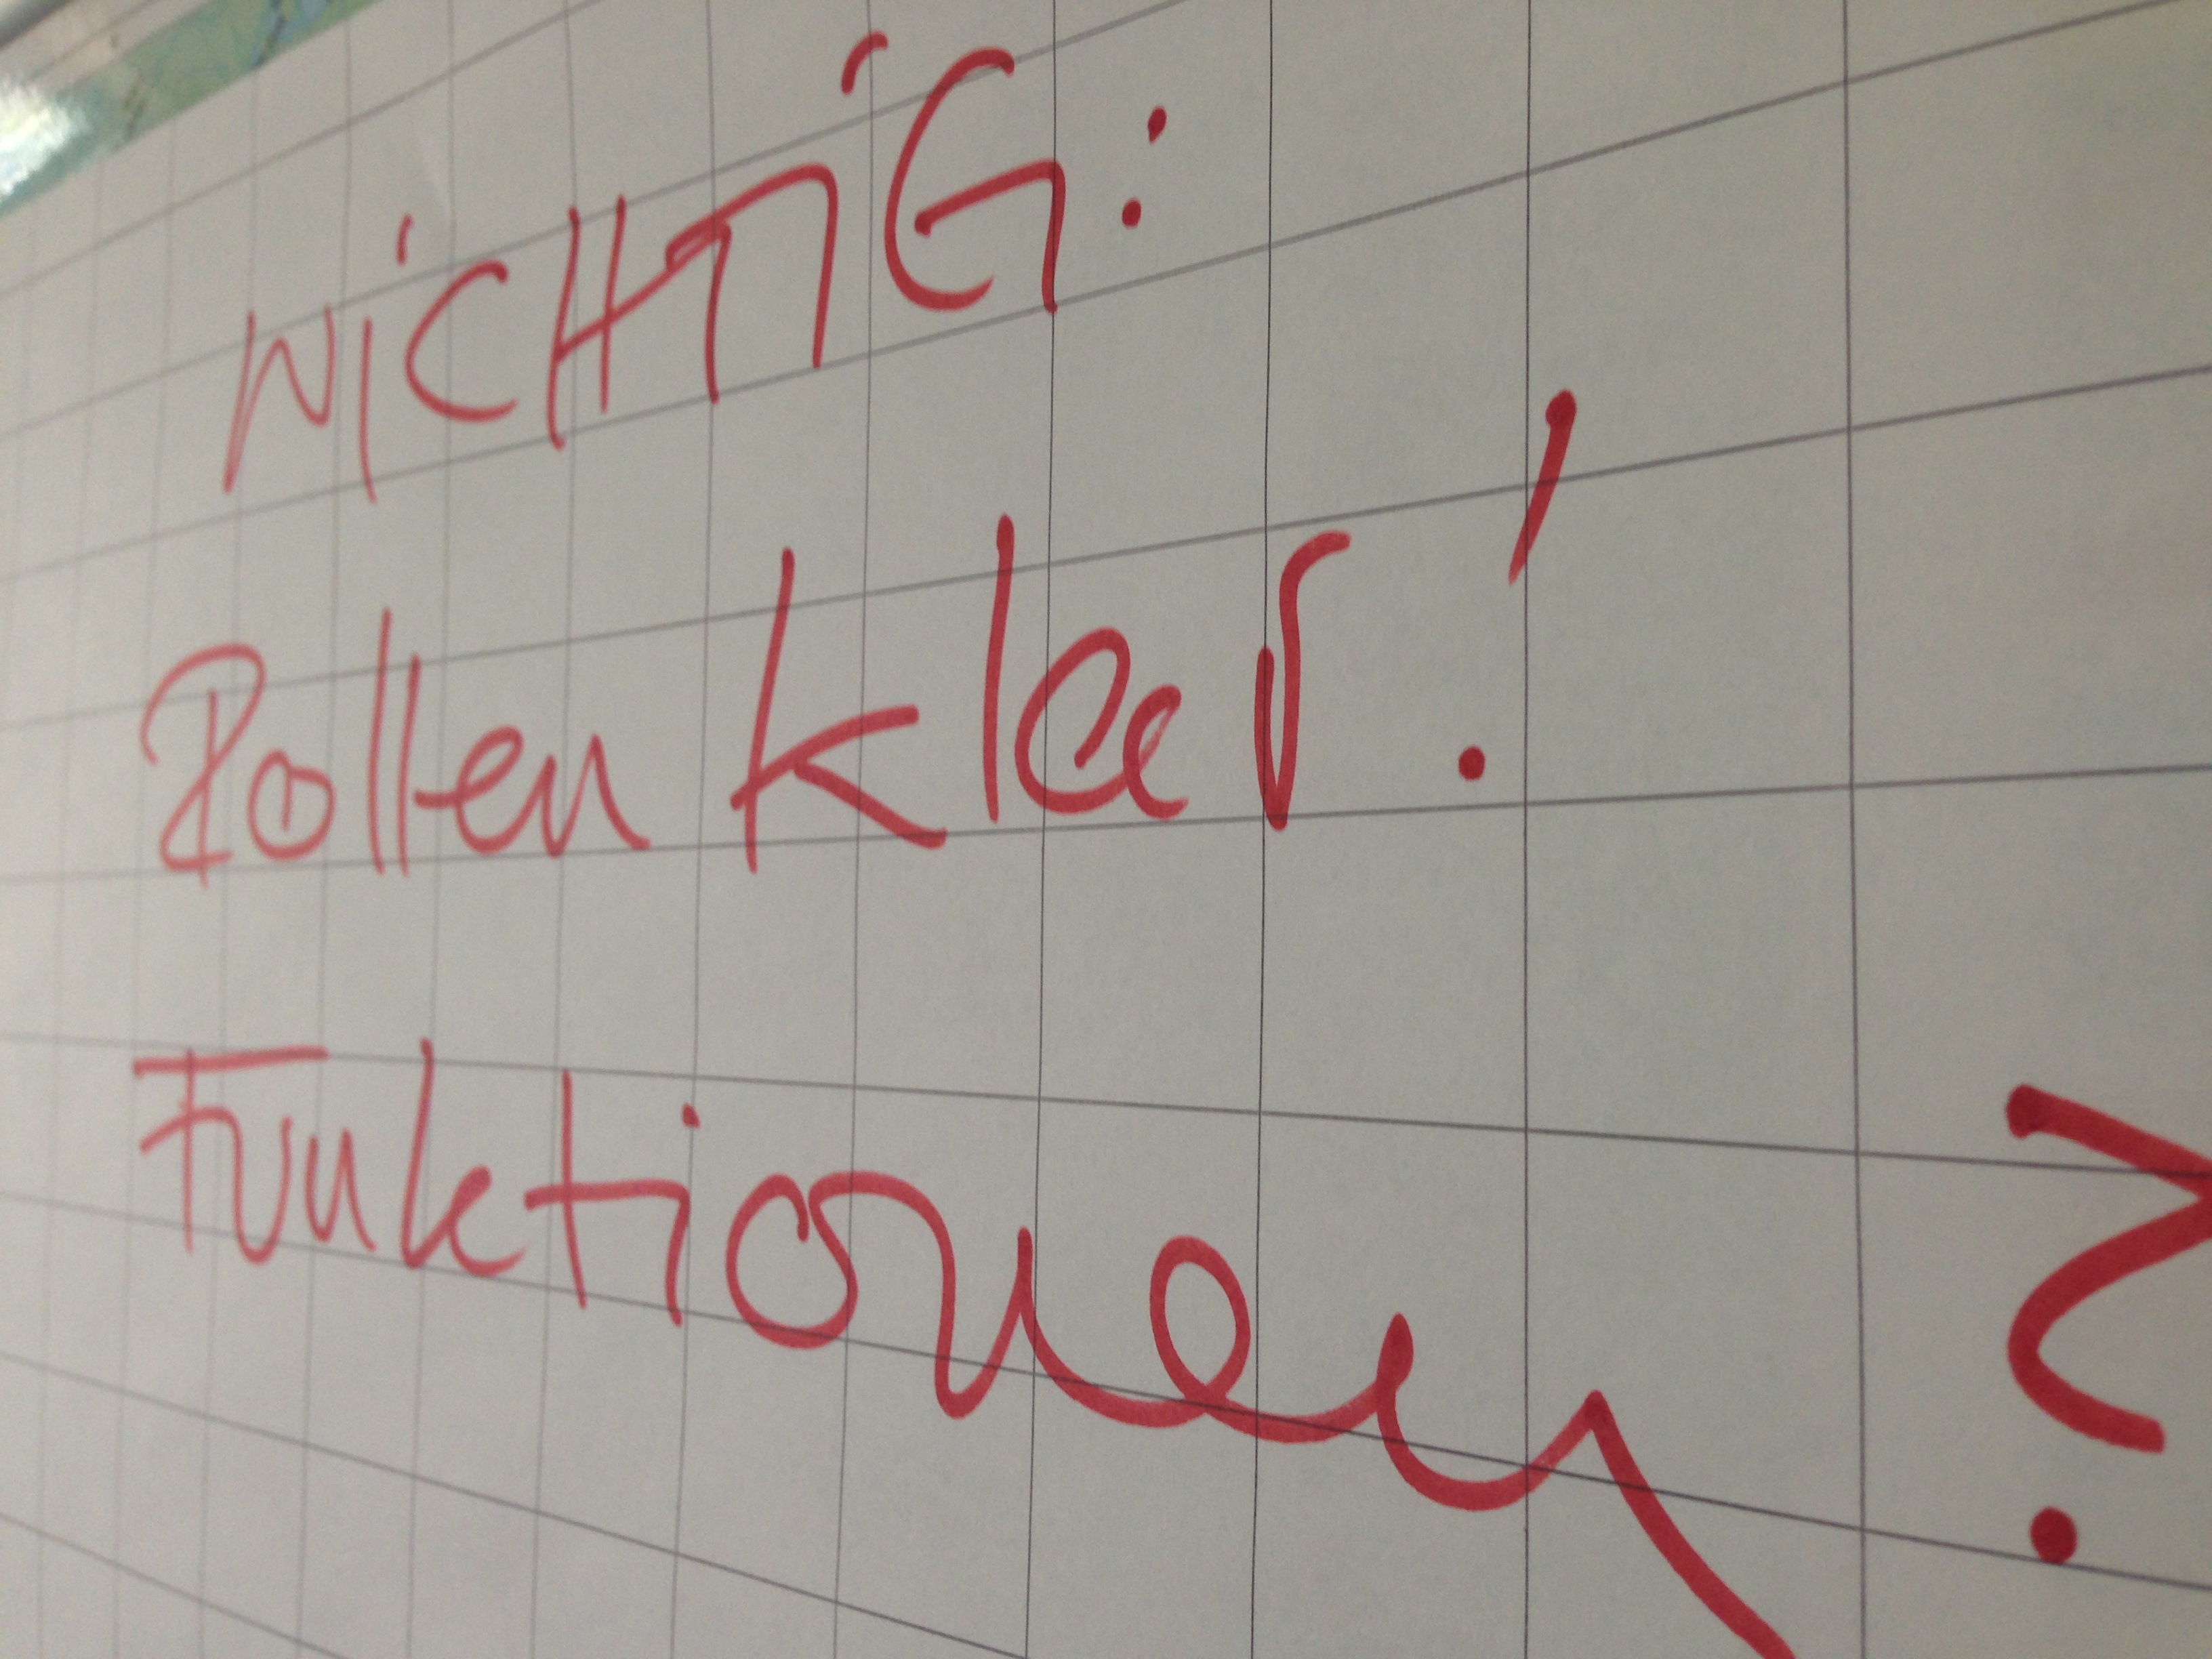 WiCHTiG:
Rollen klar!
Funktionen ?